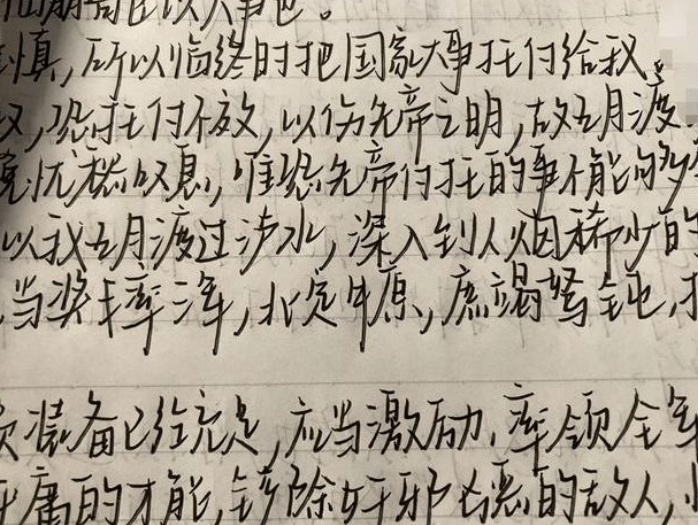 临崩寄臣以大事也。
慎,所以临终时把国家大事托付给我。
叹,恐托付不效,以伤先帝之明,故五月渡
忧愁叹息,唯恐先帝付托的事不能够
以我五月渡过泸水,深入到人烟稀少的
当奖率三军,北定中原,庶竭驽钝,
装备已经充足,应当激励、率领全军
庸的才能,铲除奸邪凶恶的敌人,